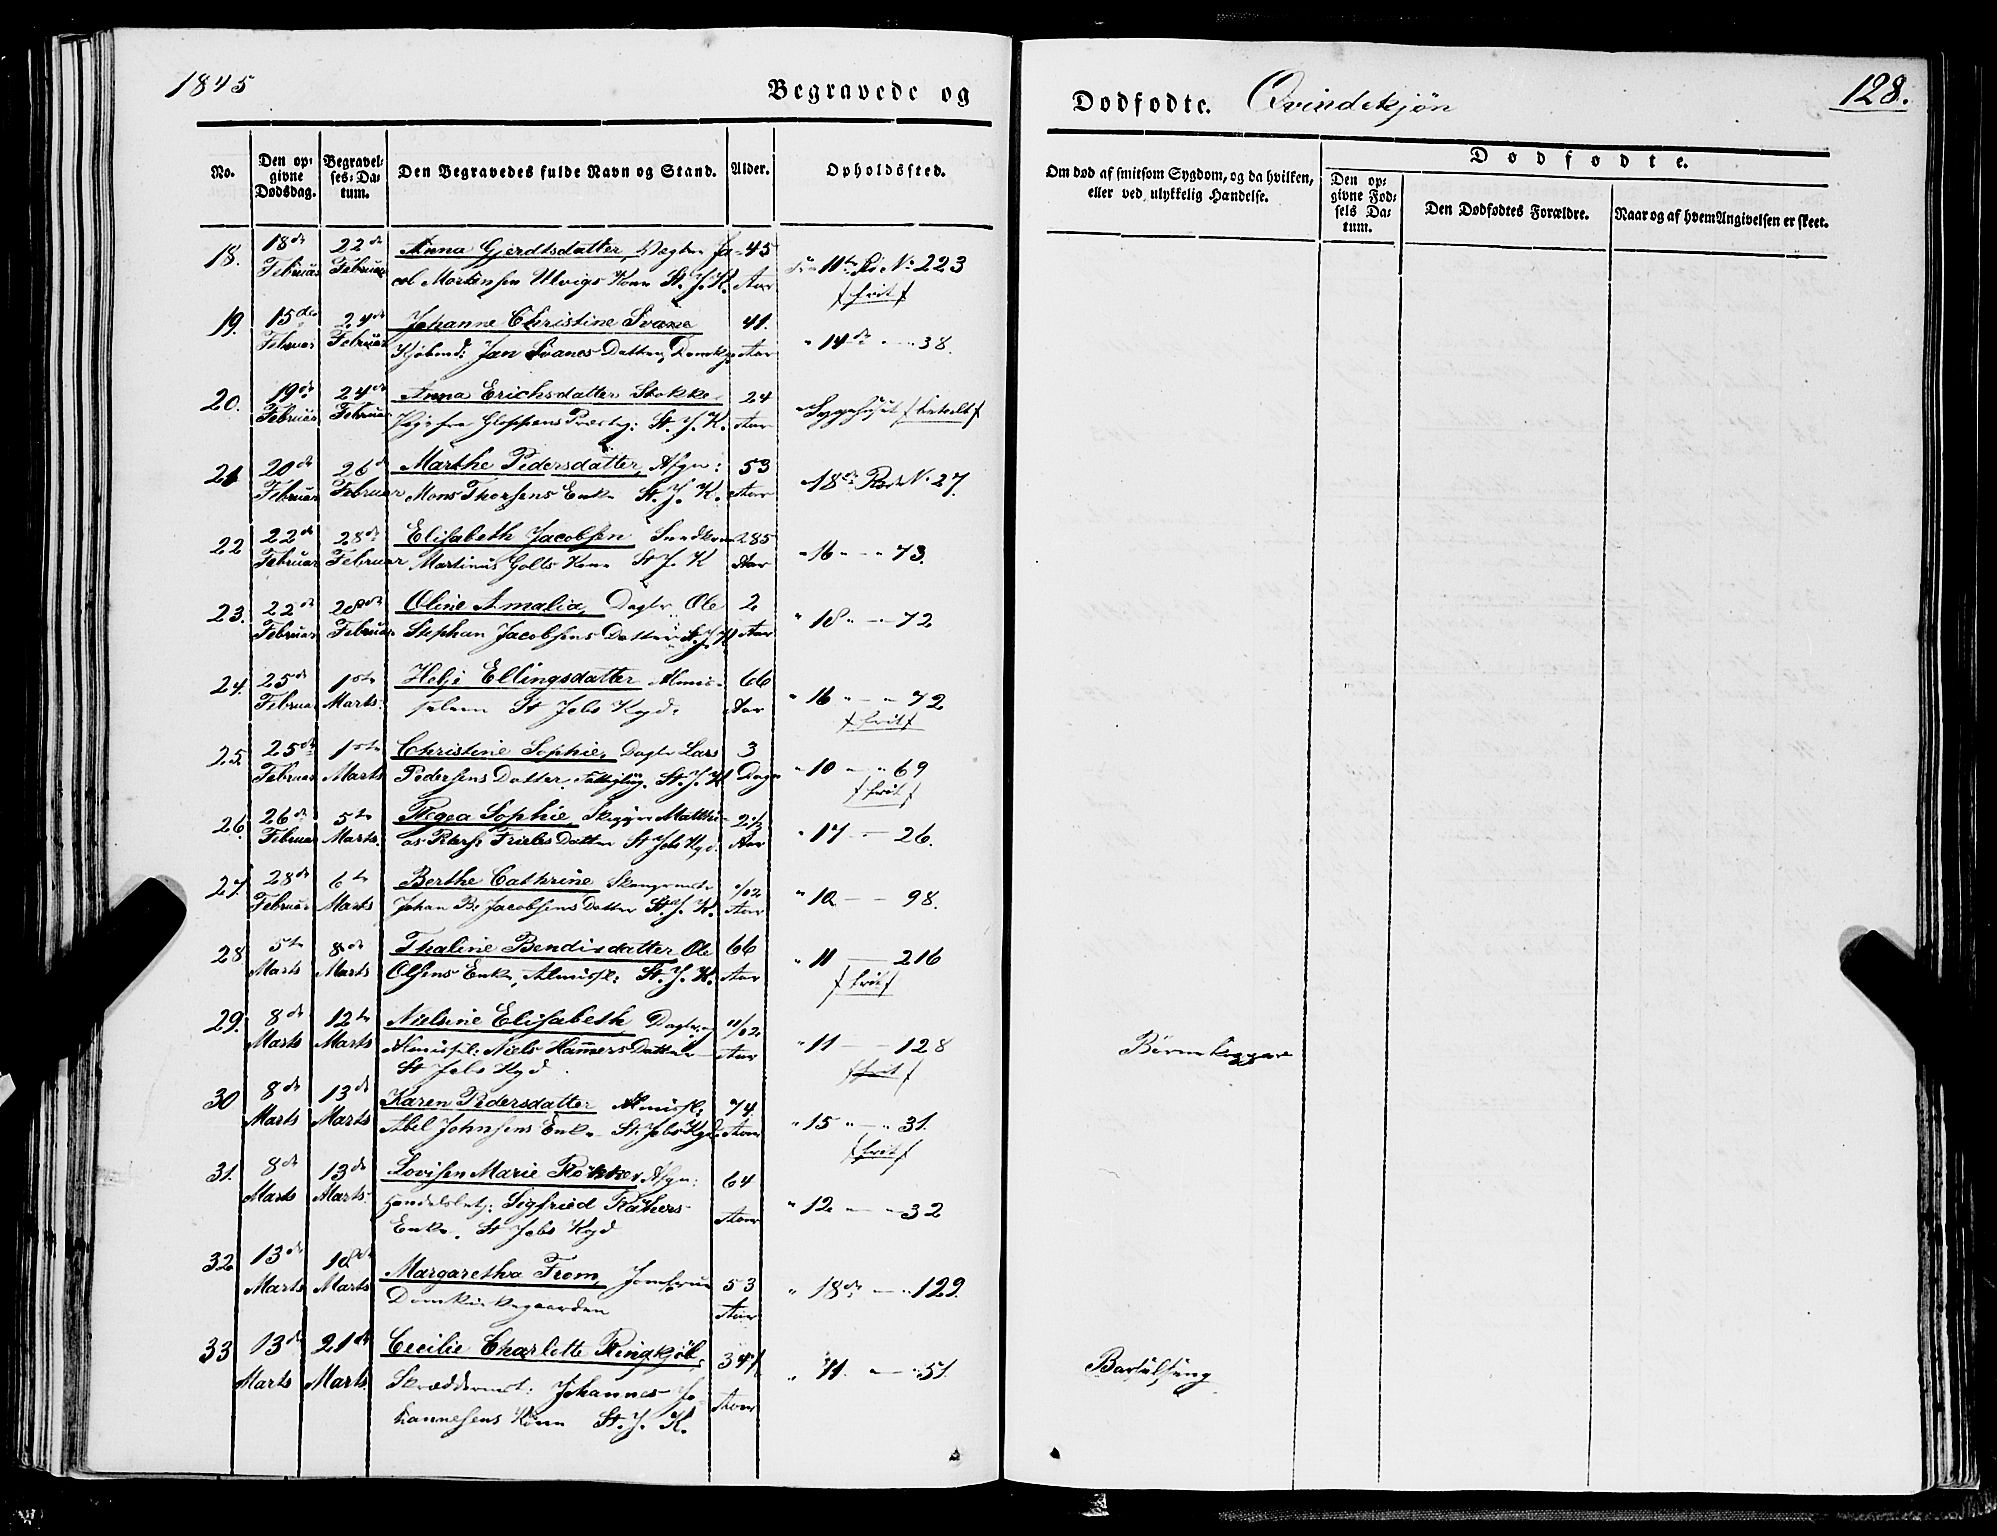 1845
Begravede og
Dodfodte. Qvindekjøn
128.
No.
Den op-
givne
Dødsdag.
Begravel-
ses-Da-
tum.
Den Begravedes fulde Navn og Stand.
Alder.
Opholdssted.
Om død af smitsom Sygdom, og da hvilken,
eller ved ulykkelig Hændelse.
Dodfodte.
Den op-
givne Fød-
sels Da-
tum.
Den Dødfødtes Forældre.
Naar og af hvem Angivelsen er skeet.
18. 18de 22de Anna Gjerdtsdatter, Vægter Ja- 45 11te Ro No 223
Februar Februar cob Mortensen Ulvigs Kone St. J. K. Aar frit
19. 15de 24de Johanne Christine Svane 41. " 14de " — 38.
Februar Februar Kjøbmd: Jan Svanes Datter, Domkg. Aar
20. 19de 24de Anna Erichsdatter Stokke 24 Sygehuset betalt
Februar Februar Pige fra Gloppens Præstg: St. J. K. Aar
21 20de 26de Marthe Pedersdatter, Afgn: 53 18de Rode No 27.
Februar Februar Mons Thorsens Enke St. J. K. Aar
22 22de 28de Elisabeth Jacobsen Snedker 285 " 16 " — " 73.
Februar Februar Martinus Golts Kone St J. K Aar
23. 22de 28de Oline Amalia, Dagln. Ole 2 " 18 " — 72
Februar Februar Stephan Jacobsens Datter St. J. K Aar
24. 25de 1ste Helje Ellingsdatter Almis- 66 " 16 " — " 72
Februar Marts. selem St Jobs Kgd. Aar frit
25. 25de 1ste Christine Sophie, Dagln Lars 3 " 10 " — " 69
Februar Marts Pedersens Datter. Fattiglig. St. J. K Dage frit
26. 26de 5te Thegea Sophie, Skipper Matthi- 2½ " 17 — 26.
Februar Marts. as Peters. Frieles Datter St Jobs Kgd. Aar
27. 28de 6te Berthe Cathrine 1/12 " 10 — — 98.
Februar Marts Johan B. Jacobsens Datter St. J. K. Aar
28 5te 8de Thaline Bendixdatter Ole 66 " 11 — 216
Marts Marts Olsens Enke, Almisl: St. J. K. Aar frit
29. 8de 12te Nielsine Elisabeth, Dagln og 11/12 " 11 — 128 Børnekopper
Marts Marts Almissl: Niels Hamers Datter Aar frit
St Jobs Kgd.
30 8de 13de Karen Pedersdatter Almissl: 74. " 15 " — " 31.
Marts Marts Abel Johnsens Enke St. Jobs Kgd. Aar frit
31. 8de 13de Lovisen Marie Afgn: 64 " 12 — " 32
Marts Marts Handelsbetj: Sigfried Aar
Enke. St Jobs Kgd
32 13de 18de Margaretha From, Jomfrue 53 " 18de — " 129.
Marts Marts Domkirkegaarden Aar
33 13de 21de Cecilie Charlotte Ringkjøb, 34 " 11. — " 51. Barselseng
Marts Marts Skræddermst: Johannes Jo- Aar
hannesens Kone St. J. K.